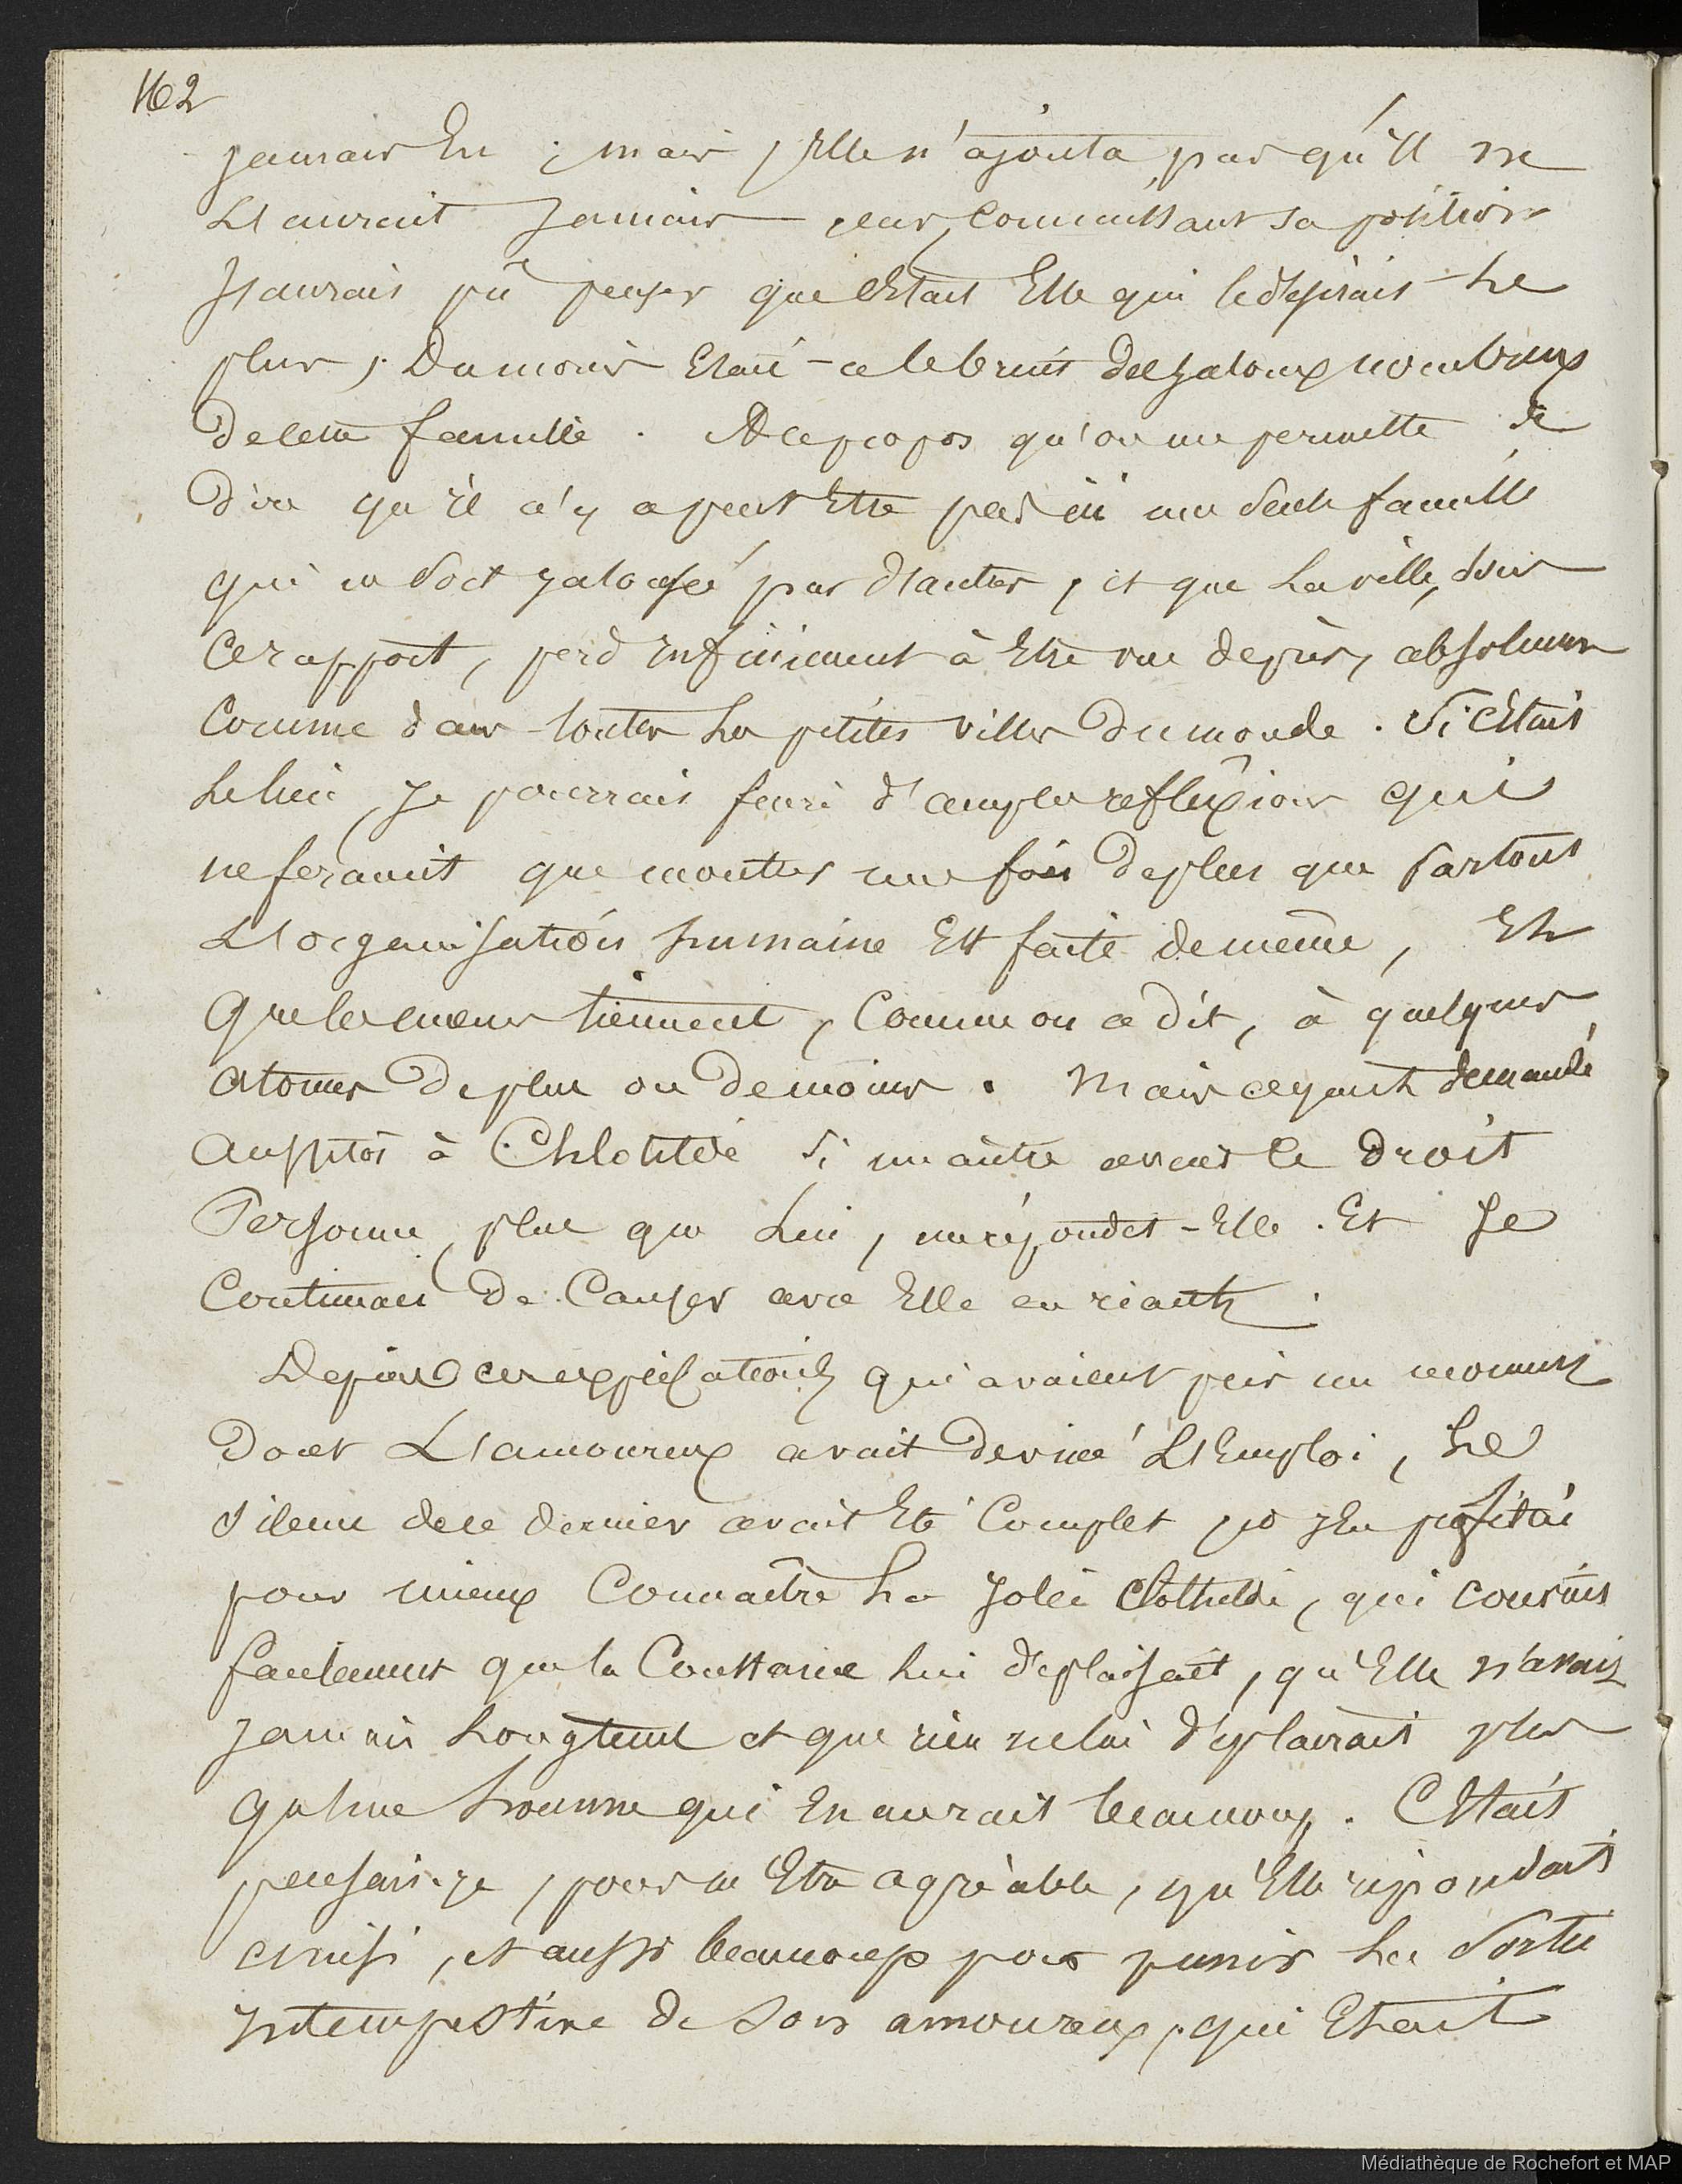 162
jamais Eu ; mais, Elle n'ajouta pas qu'Il ne
L'aurait Jamais car, Connaissant sa position
J'aurais pû penser que c'Etait Elle qui le désirait Le
plus, Du moins Etait-ce le bruit des Jaloux nombreux
de cette famille. A ce propos qu'on me permette de
Dire qu'il n'y a peut Etre pas ici une Seule famille
qui ne Soit jalousée par d'autres, et que La ville, sous
Ce rapport, perd Infiniment à Etre vue de près, absolument
Comme dans toutes Les petites villes Du monde. Si c'Etait
Le lieu, Je pourrais faire d'amples réflexions qui
ne feraient que montrer une fois de plus que Partout
L'organisation humaine Est faite de même, Et
Que les mœurs tiennent, Comme on a dit, à quelques
Atomes De plus ou De moins. Mais ayant demandé
Aussitôt à Chlotilde Si un autre avait Le Droit
Personne, plus que Lui, me répondit-Elle. Et Je
Continuai De Causer avec Elle en riant.
Depuis ces explications qui avaient pris un moment
Dont L'amoureux avait deviné L'Emploi, Le
Silence de ce dernier avait Eté Complet
pour mieux Connaître La Jolie Clothilde, qui
que la Constance Lui déplaisait, qu'Elle n'avait
Jamais Longtems et que rien ne lui déplairait plus
Qu'une homme qui En aurait beaucoup. C'Etait
pensais-je, pour m'Etre agréable, qu'Elle répondait
ainsi, et aussi beaucoup pour punir La Sortie
Intempestive De Son amoureux, qui Etait
Médiathèque de Rochefort et MAP